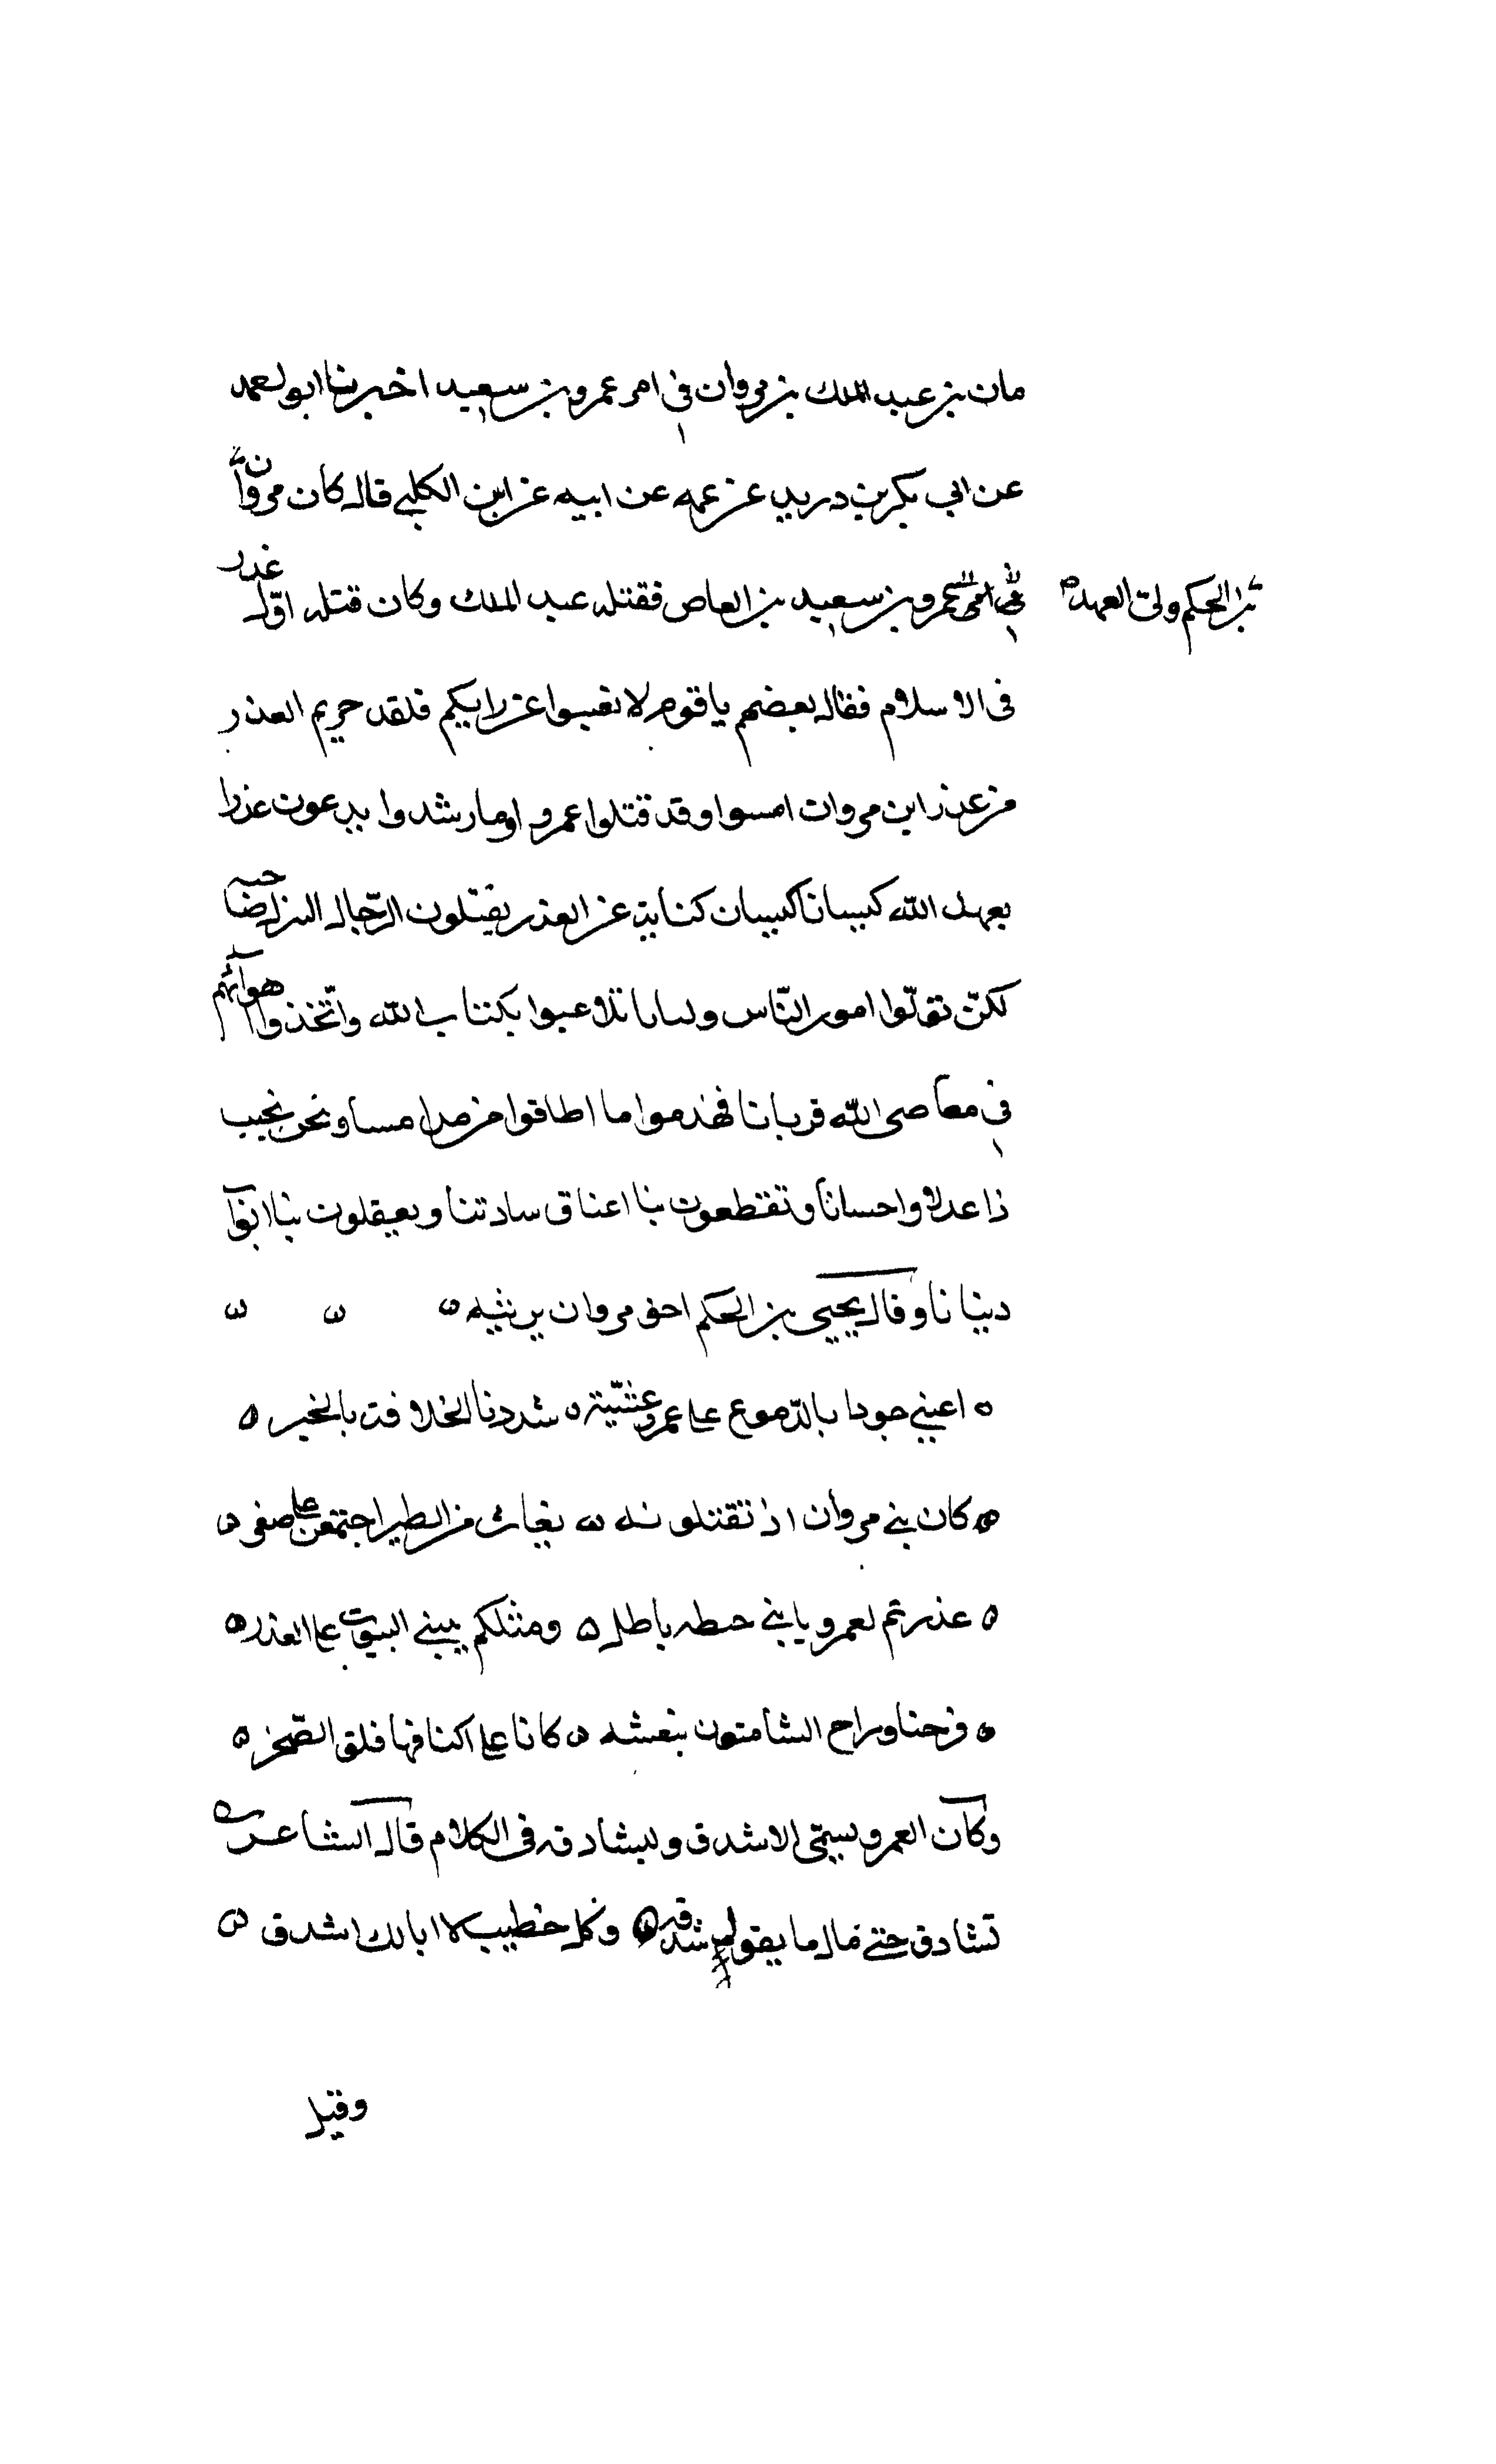 مان بن عبد الملك بن مروان في امر عمرو بن سعيد اخبرنا ابو احمد
عن ابي بكر بن دريد عن عمه عن ابيه عن ابن الكلبي قال كان مروان
بن الحكم ولى العهد
عمرو بن سعيد بن العاص فقتله عبد الملك وكان قتله اوّل غدر
فى الاسلام فقال بعضهم يا قوم لا تغبوا عن رايكم فلقد جريم العذر
من عذر ابن مروان امسوا وقد قتلوا عمروا وما رشدوا يدعون عذرا
بعهد الله كيسانا كيسان كناية عن العذر يقتلون الرّجال البزل ضاحيه
لكن تولّوا امور النّاس ولدانا تلاعبوا بكتاب الله واتّخذوا اهوائهم
في معاصى الله قربانا فهدموا ما اطاقوا من مسا ونحن نجيب
ذا عدلا واحسانا وتقطعون بنا اعناق سادتنا ويعقلون بنا ابوآ
دنيانا وقال يحيى بن الحكم اخو مروان يرثيه
اعيني جودا بالدّموع على عمرو عشيّة شددنا الخلافة بالخير
كان بني مروان اذ تقتلونه بغاث من الطير اجتمعن على صقر
عذرتم لعمرو يا بني حيطه باطل ومثلكم يبني البيوت على العذر
فرحنا وراح الشامتون بنعشه كانا على اكتافها فلق الصّخر
وكان العمرو يسمّى الاشدق ولبشادقه فى الكلام قال الشاعر
تشادق حتى مال ما يقول شدقه وكل خطيب لا ابا لك اشدق
وقيل